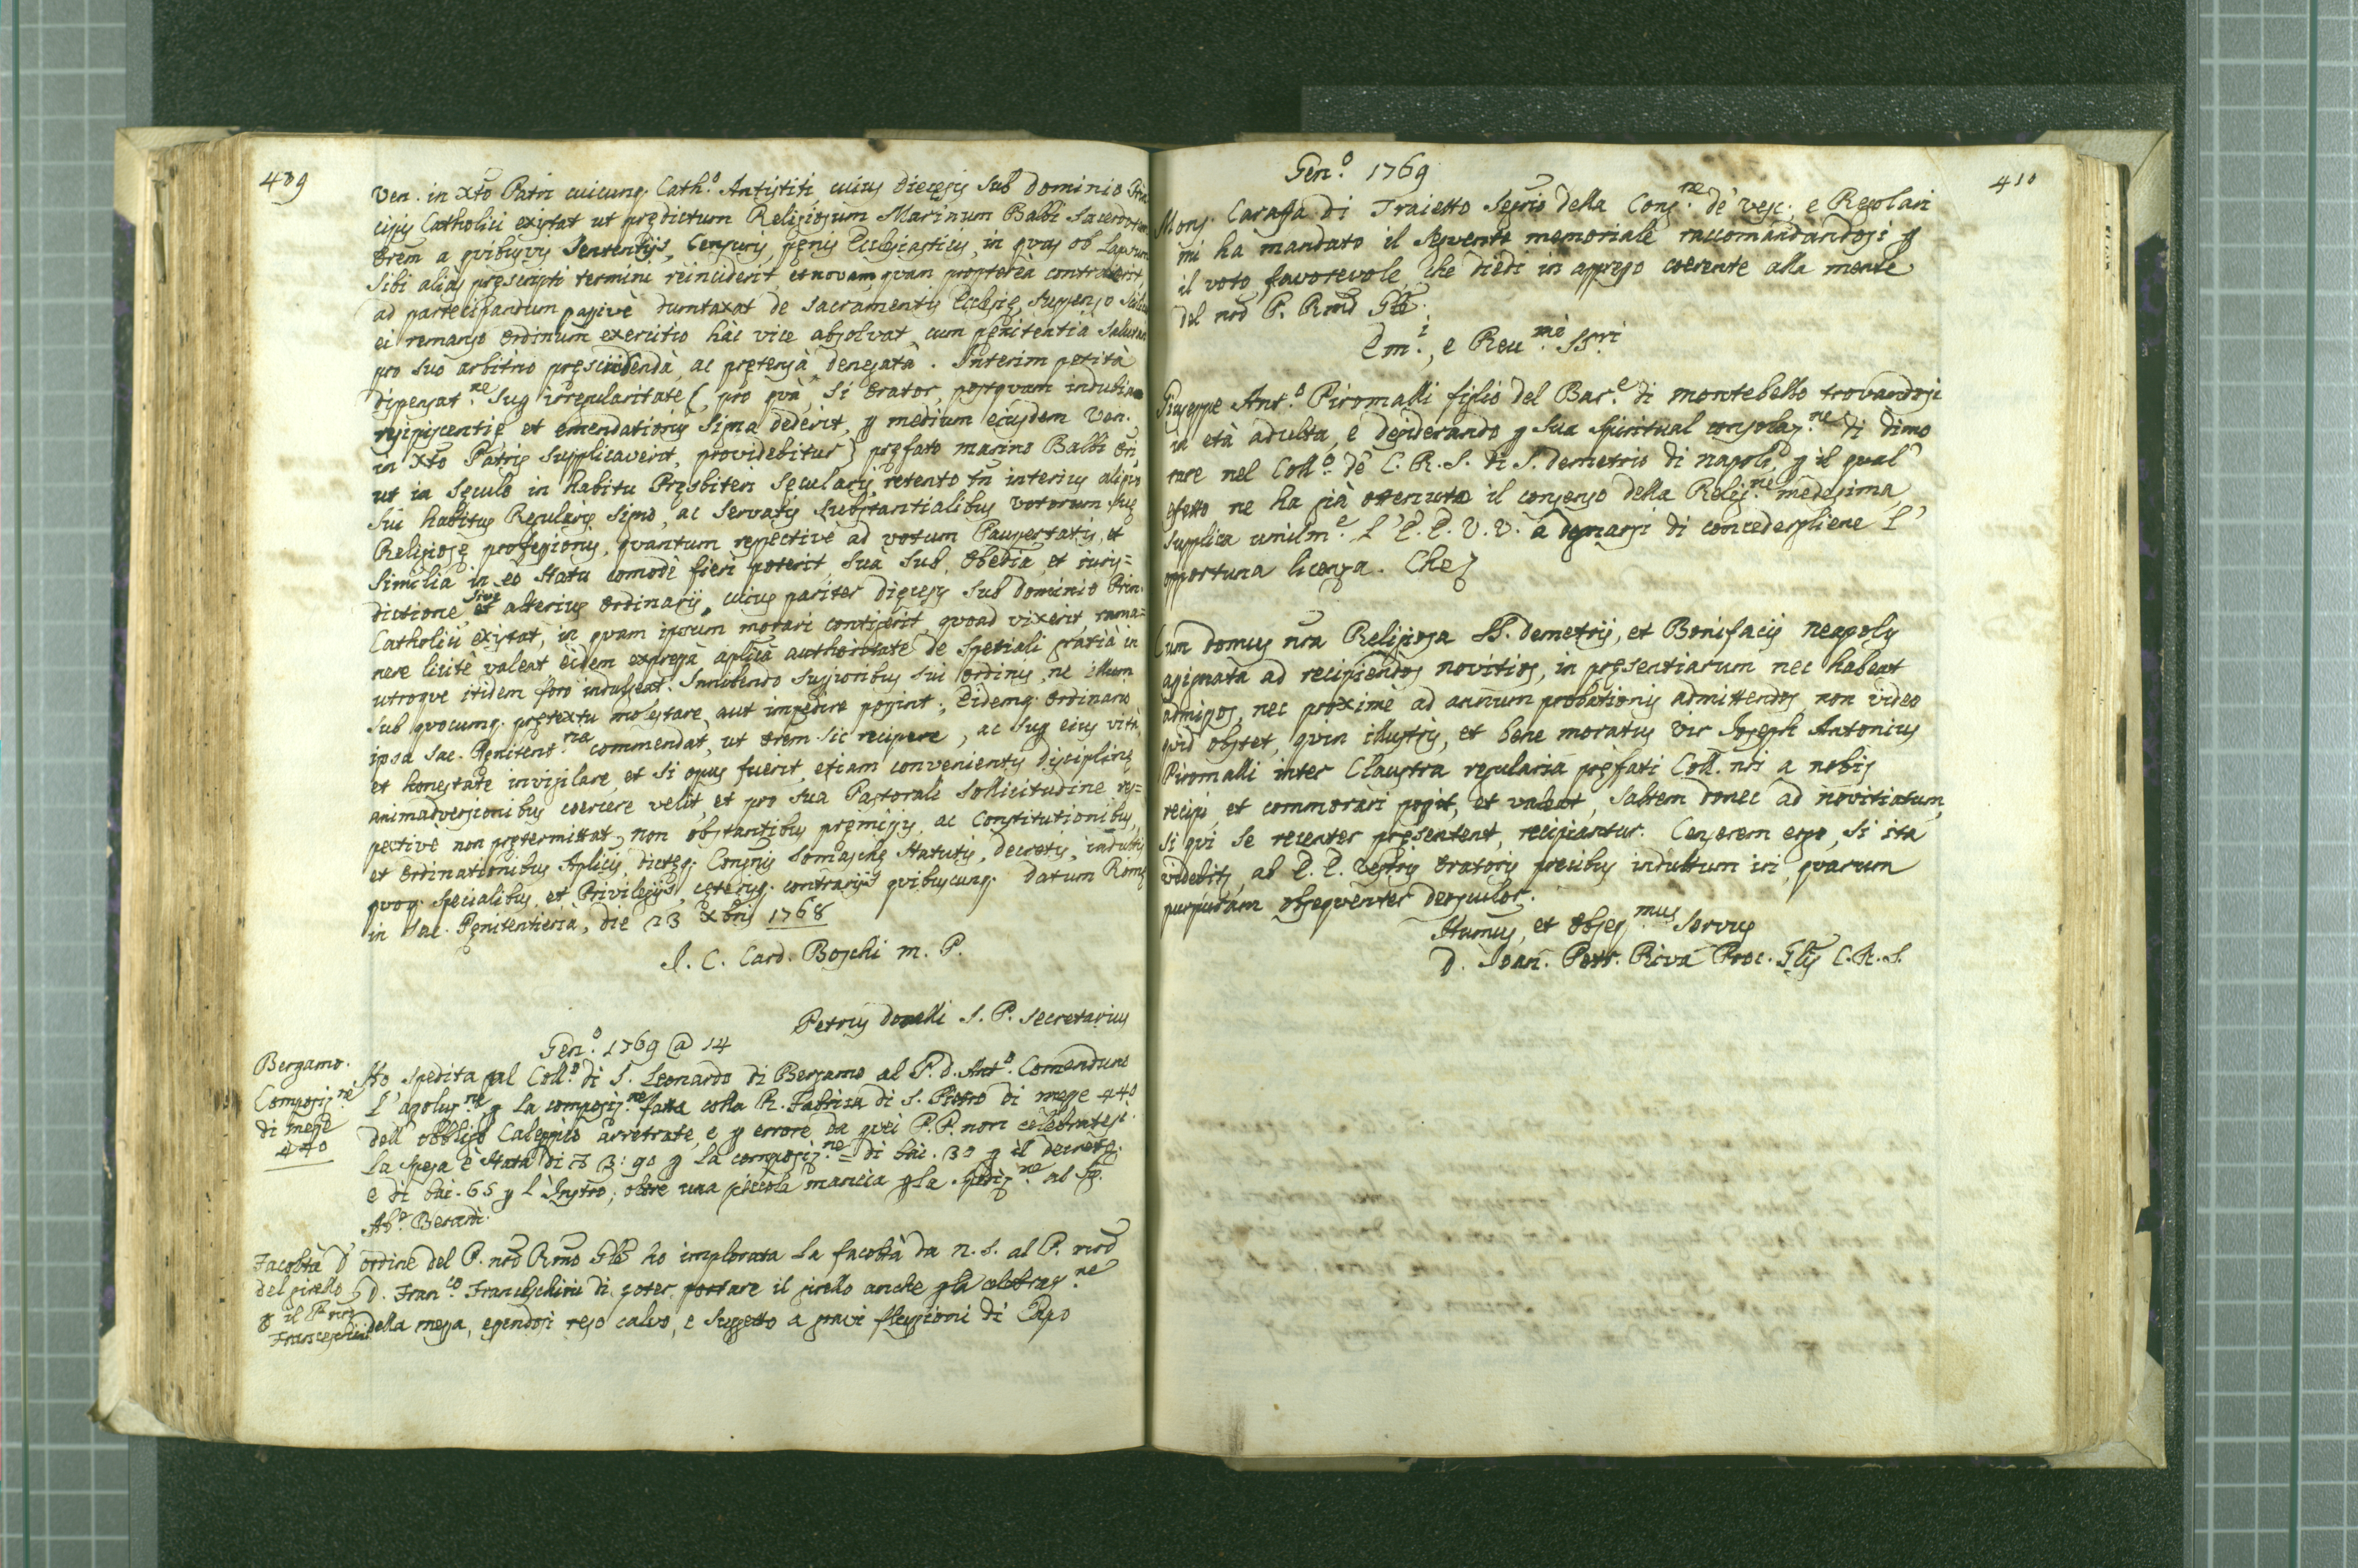 409
Ven. in Xto Patri cuicunq. Cath.o Antistiti cuius Diecesis sub Dominio Prin
cipis Catholici existat ut prędictum Religiosum Marinum Balbi Sacerdotem
Orem a quibusvis Sententijs, Censuris, pęnis Ecclesiasticis, in quas ob Lapsum
sibi alias pręscripti termini reinciderit et novam, quam proptereà contraxerit,
ad participandum passivè dumtaxat de Sacramentis Ecclesię, suspenso
ei remanso Ordinum exercitio hàc vice absolvat, cum pęnitentià salutari
pro suo arbitrio pręscindendà, ac prętensà denegatà. Interim petità
dispensat.ne suę irregularitate (pro quà, si Orator, postquam indubia
resipiscentię et emendationis signa dederit, p medium eiusdem Ven.
in Xto Patris supplicaverit, providebitur) pręfato Marino Balbi Ori,
ut in sęculo in habitu Pręsbiteri Sęcularis, retento tn interius aliquo
sui habitus Regularis signo, ac servatis substantialibus votorum suę
Religiosę professionis, quantum respectivè ad votum Paupertatis, et
similia in eo statu comodè fieri poterit, suà sub Obedia, et iuris=
dictione, sive et alterius Ordinarij, cuius pariter dięcesis sub dominio Prin.
Catholici existat, in quam ipsum morari contigerit, quoad vixerit, rema=
nere licitè valeat eidem expressà aplicà authoritate de speciali gratià in
utroque itidem foro indulgeat. Innibendo superioribus sui Ordinis, ne illum
sub quocumq. prętextu molestare, aut impedire possint; Eidemq. Ordinario
ipsa Sac. Pęnitent.ria commendat, ut Orem sic recipere, ac suę eius vità,
et honestate invigilare, et si opus fuerit, etiam convenientis disciplinę
animadversionibus coercere velit, et pro sua Pastorali sollicitudine res=
pectivè non prętermittat, non obstantibus pręmissis, ac Constitutionibus,
et Ordinationibus Aplicis, dictęq. Congnis Somaschę statutis, decretis, indultis
quoq. specialibus, et Privilegijs, cęterisq. contrarijs quibuscunq. Datum Romę
in Sac. Pęnitentierià, die 23 Xbris 1768
I. C. Card. Boschi m. P.
Petrus Donelli S. P. Secretarius
Gen.o 1769 @ 14
Bergamo.
Composiz.ne
di messe
440
Ho spedita pal Coll.o di S. Leonardo di Bergamo al P. d. Ant.o Comenduno
l'asoluz.ne p la composiz.ne fatta colla R. Fabrica di S. Pietro di messe 440
dell' obbligo Caleppio arretrate, e p errore da quei P.P. non celebratesi.
La spesa è stata di 3: 90 p la composiz.ne = di bai. 30 p il decreto.
e di bai. 65 p l'Instro, oltre una piccola mancia p la spediz.ne al Sig.
Ab.e Berardi.
Facoltà
del pirello
p il P nro
Franceschini
D'ordine del P. nro Rmo Gle ho implorata la facoltà da N. S. al P. nro
D. Fran.co Franceschini di poter portare il pirello anche p la celebraz.ne
della messa, essendosi reso calvo, e sugetto a gravi flussioni di Capo
410
Gen.o 1769
Mons. Carafa di Traietto Segrio della Cong.ne de' Vesc. e Regolari
mi ha mandato il seguente memoriale raccomandandosi p
il voto favorevole, che diedi in appresso coerente alla mente
del nro P. Rmo Gle.
Em.i, e Reu.mi SS.ri
Giuseppe Ant.o Piromalli figlio del Bar.e di Montebello trovandosi
in età adulta, e desiderando p sua spiritual consolaz.ne di dimo
rare nel Coll.o de' C. R. S. di S. Demetrio di Napoli, p il qual
efetto ne ha già ottenuto il consenso della Relig.ne medesima,
supplica umilm.e l'E.E. V.V. a degnarsi di concedergliene l'
opportuna licenza. Che
Cum domus nra Religiosa SS. Demetrij, et Bonifacij Neapolis
assignata ad recipiendos novitios, in pręsentiarum nec habeat
admissos, nec proximè ad annum probationis admittendos, non video
quid obstet, quin illustris, et bene moratus vir Joseph Antonius
Piromalli inter Claustra regularia pręfati Coll. nri a nobis
recipi, et commorari possit, et valeat, saltem donec ad novitiatum,
si qui se recenter pręsentent, recipiantur. Censerem ergo, si ita
videbitr, ab E. E. Vestris Oratoris precibus indultum iri, quarum
purpuram obsequenter deosculor.
Humus, et Obseq.mus servus
D. Joan. Petr. Riva Proc. Glis C. R. S.